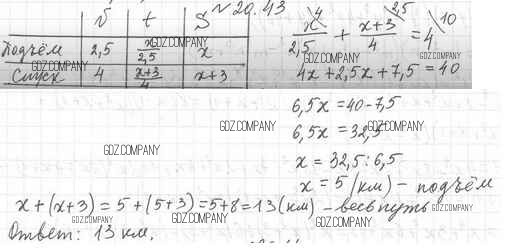 № 20.43
v t S
Подъём 2,5 x/2,5 x
Спуск 4 (x+3)/4 x+3
x/2,5 \4 + (x+3)/4 \2,5 = 4 \10
4x+2,5x+7,5=40
6,5x=40-7,5
6,5x=32,5
x=32,5:6,5
x=5 (км) – подъём
x+(x+3)=5+(5+3)=5+8=13(км) – весь путь
Ответ: 13 км.
GDZ.COMPANY
GDZ.COMPANY
GDZ.COMPANY
GDZ.COMPANY
GDZ.COMPANY
GDZ.COMPANY
GDZ.COMPANY
GDZ.COMPANY
GDZ.COMPANY
GDZ.COMPANY
GDZ.COMPANY